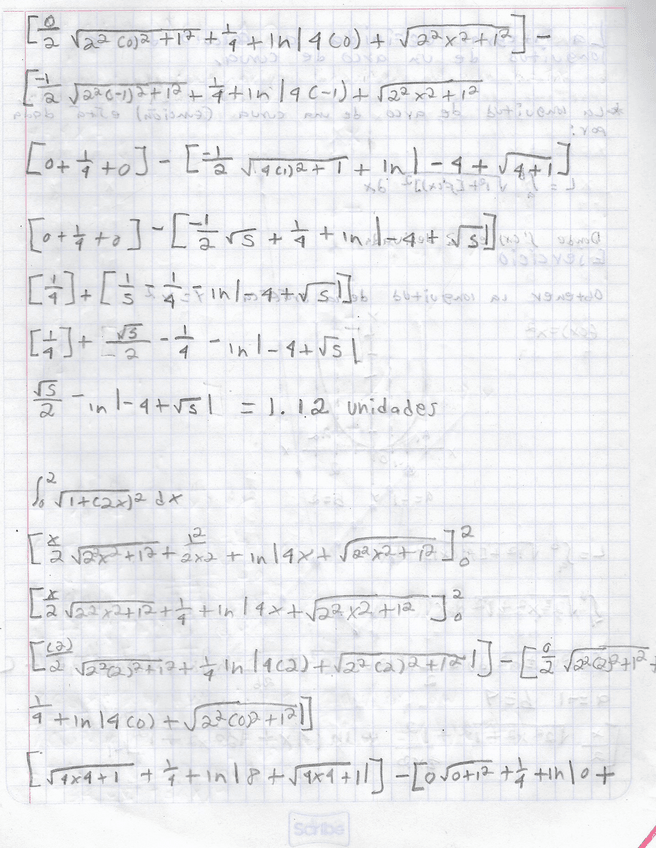 [0/2 √2²(0)²+1² + 1/4 + ln|4(0) + √2²x²+1²] -
[-1/2 √2²(-1)²+1² + 1/4 + ln|4(-1) + √2²x²+1²
[0 + 1/4 + 0] - [-1/2 √4(1)²+1 + ln|-4 + √4+1]
[0 + 1/4 + 0] - [-1/2 √5 + 1/4 + ln|-4 + √5|]
[1/4] + [1/5 - 1/4 - ln|-4 + √5|]
[1/4] + √5/2 - 1/4 - ln|-4 + √5|
√5/2 - ln|-4 + √5| = 1.12 unidades
∫₀² √1+(2x)² dx
[x/2 √2²x²+1² + 1²/2x2 + ln|4x + √2²x²+1²]₀²
[x/2 √2²x²+1² + 1/4 + ln|4x + √2²x²+1²]₀²
[(2)/2 √2²(2)²+1² + 1/4 ln|4(2) + √2²(2)²+1²|] - [0/2 √2²(2)²+1² +
1/4 + ln|4(0) + √2²(0)²+1²|]
[√4x4+1 + 1/4 + ln|8 + √4x4+1|] - [0√0+1² + 1/4 + ln|0 +
Scribe